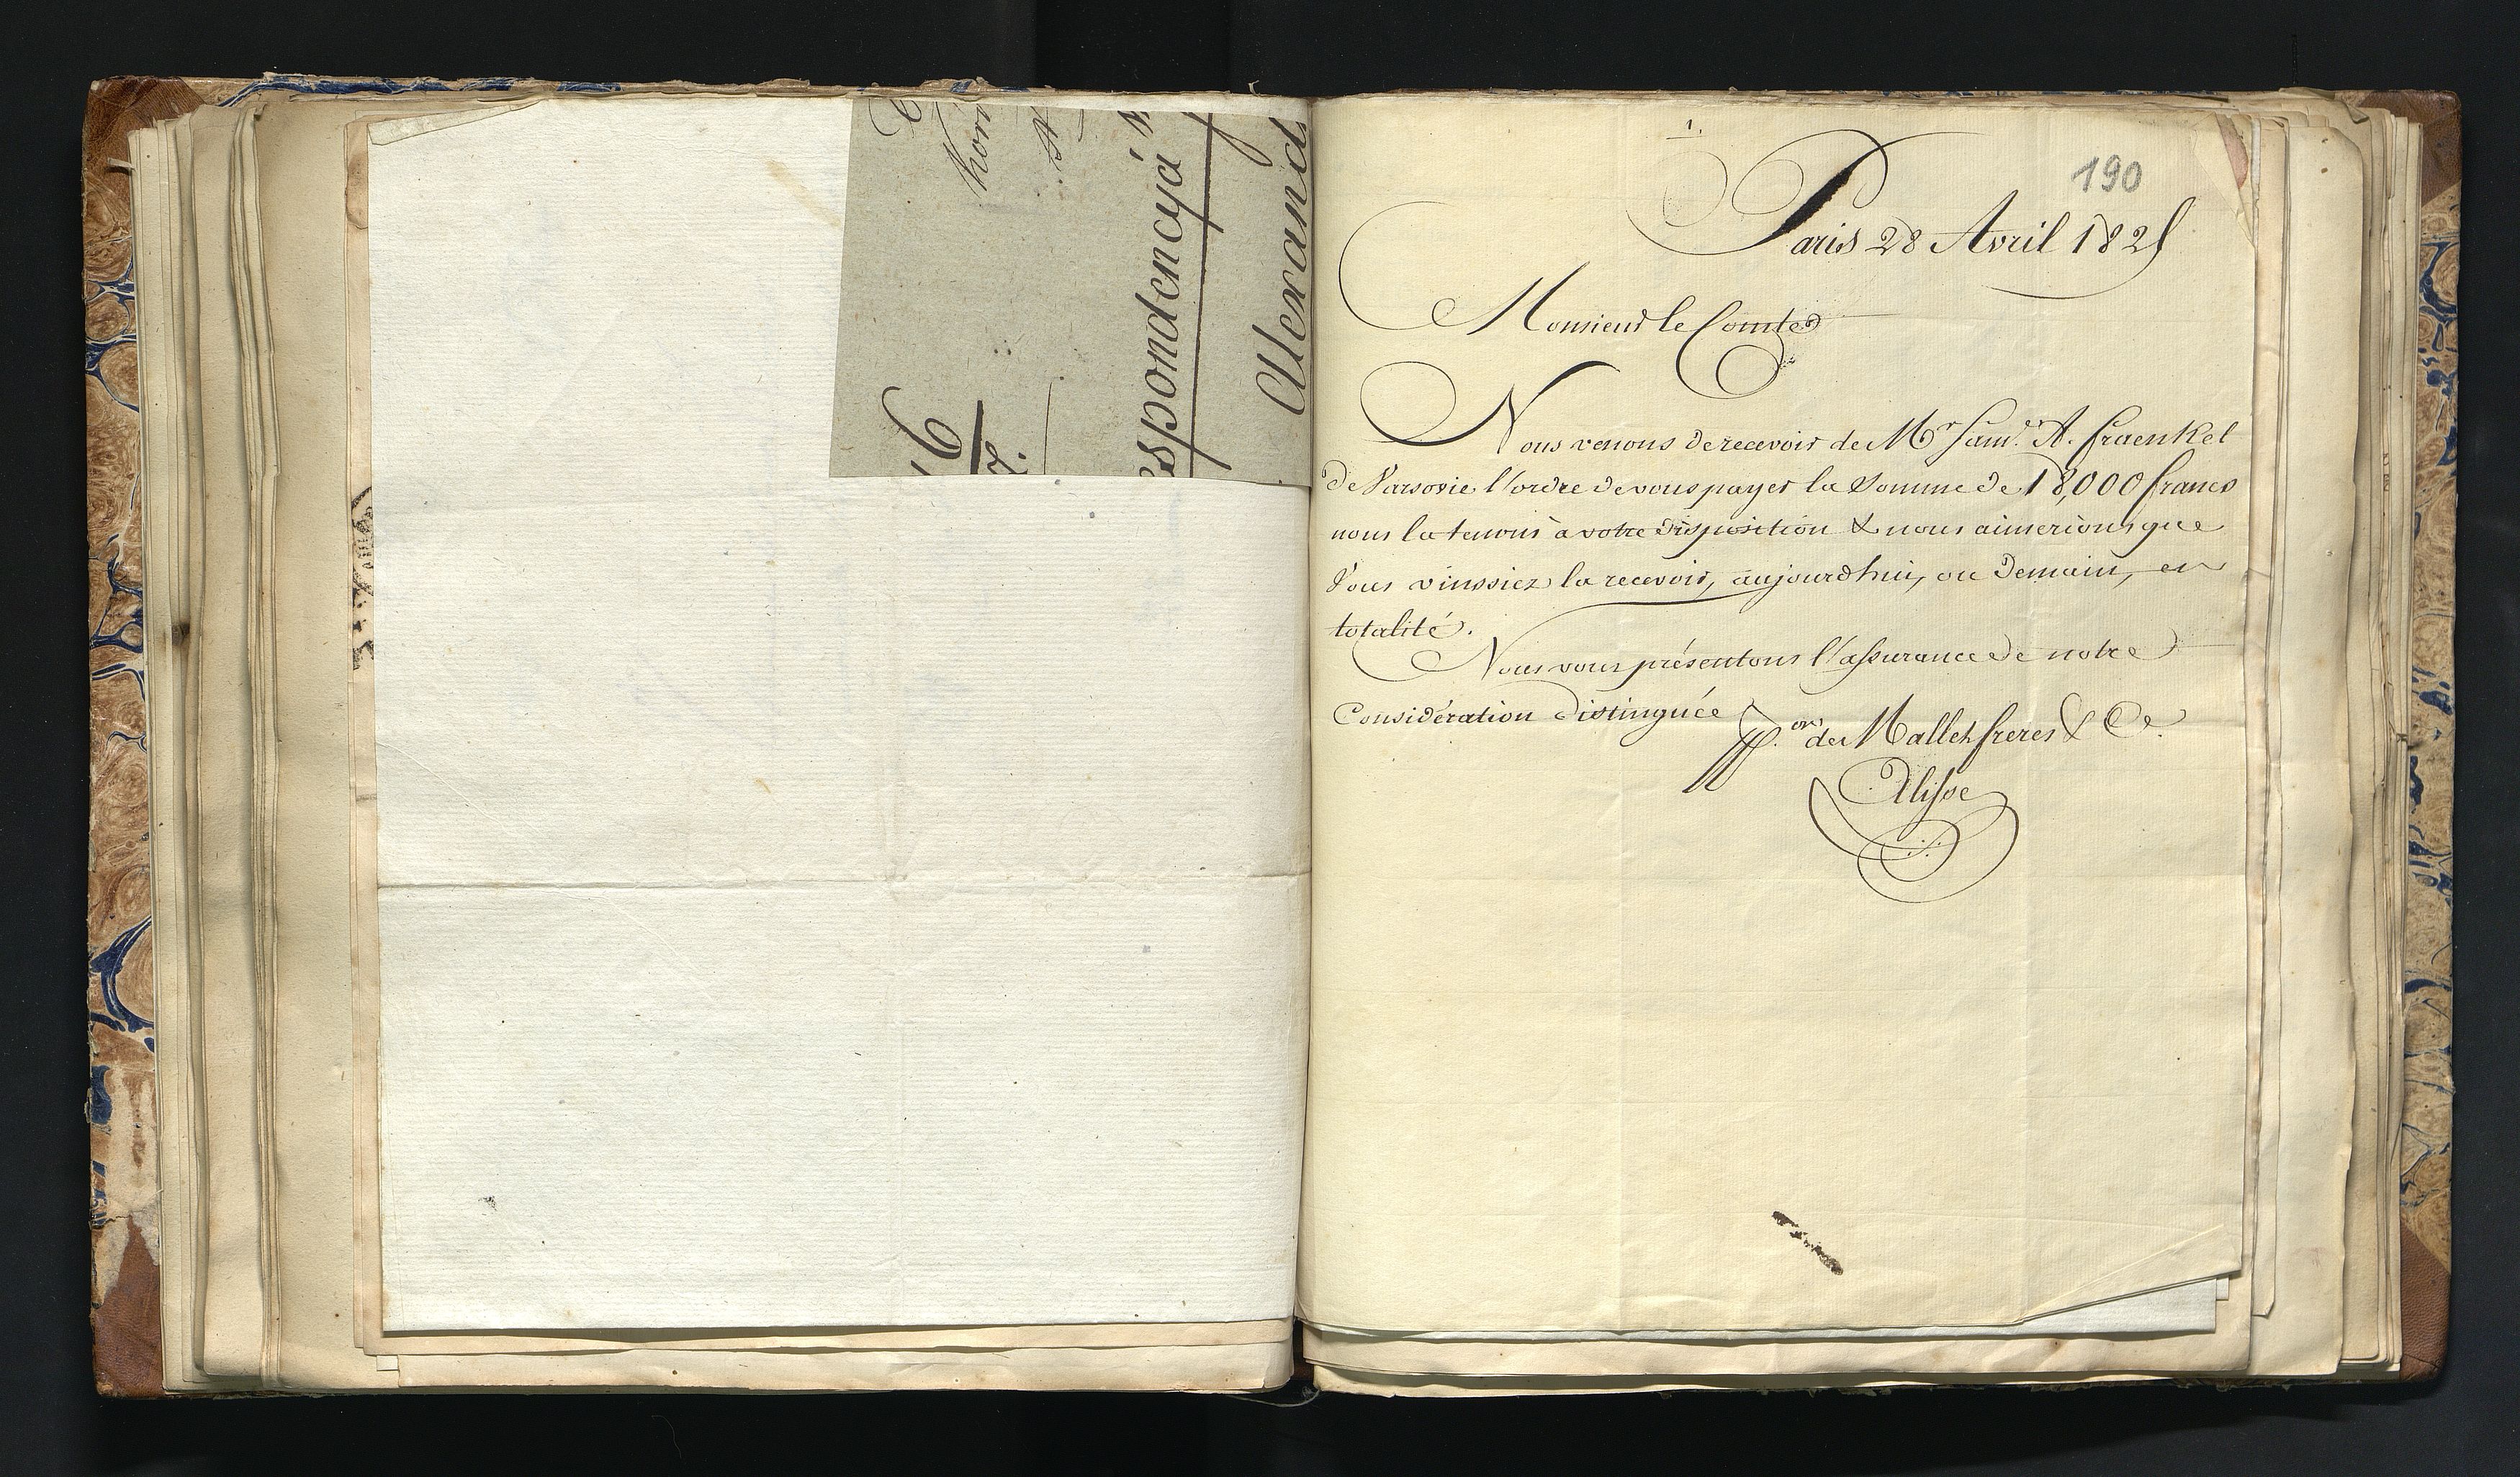 6
espondencyá
Alexand
1.
190
Paris 28 Avril 1825
Monsieur le Comte
Nous venons de recevoir de Mr Saml. A. fraenkel
de Varsovie l'ordre de vous payer la Somme de 18,000 francs
nous la tenons à votre disposition & nous aimerions que
Vous vinssiez la recevoir, aujourdhui, ou Demain, en
totalité.
Nous vous présentons l'assurance de notre
Considération distinguée
Pon. de Mallet freres & Ce.